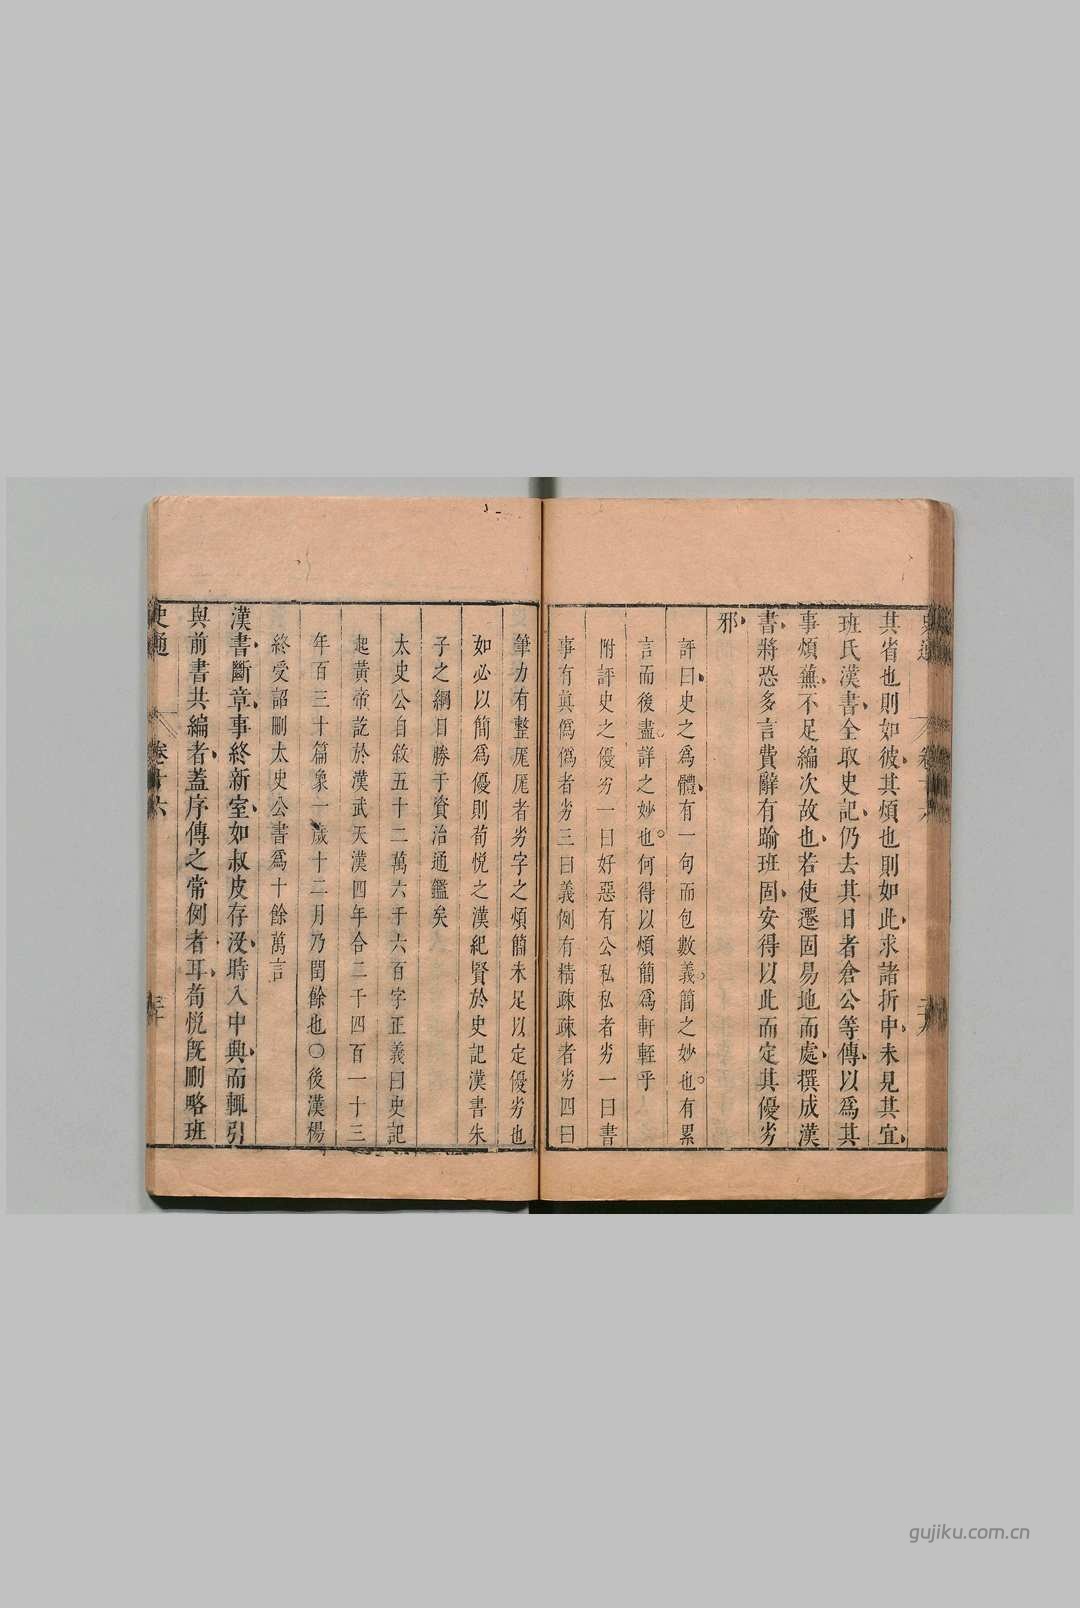 其省也則如彼其煩也則如此求諸折中未見其宜
班氏漢書全取史記仍去其日者倉公等傳以爲其
事煩蕪不足編次故也若使遷固易地而處撰成漢
書將恐多言費辭有踰班固安得以此而定其優劣
邪
評曰史之爲體有一句而包數義簡之妙也有累
言而後盡詳之妙也何得以煩簡爲軒輊乎
附評史之優劣一曰好惡有公私私者劣一曰書
事有眞僞僞者劣三曰義例有精疎疎者劣四曰
筆力有整厖厖者劣字之煩簡未足以定優劣也
如必以簡爲優則荀悅之漢紀賢於史記漢書朱
子之綱目勝于資治通鑑矣
太史公自敘五十二萬六千六百字正義曰史記
起黃帝訖於漢武天漢四年合二千四百一十三
年百三十篇象一歲十二月乃閏餘也○後漢楊
終受詔刪太史公書爲十餘萬言
漢書斷章事終新室如叔皮存沒時入中興而輒引
與前書共編者蓋序傳之常例者耳荀悅旣刪略班
史通 卷十六 三十
gujiku.com.cn